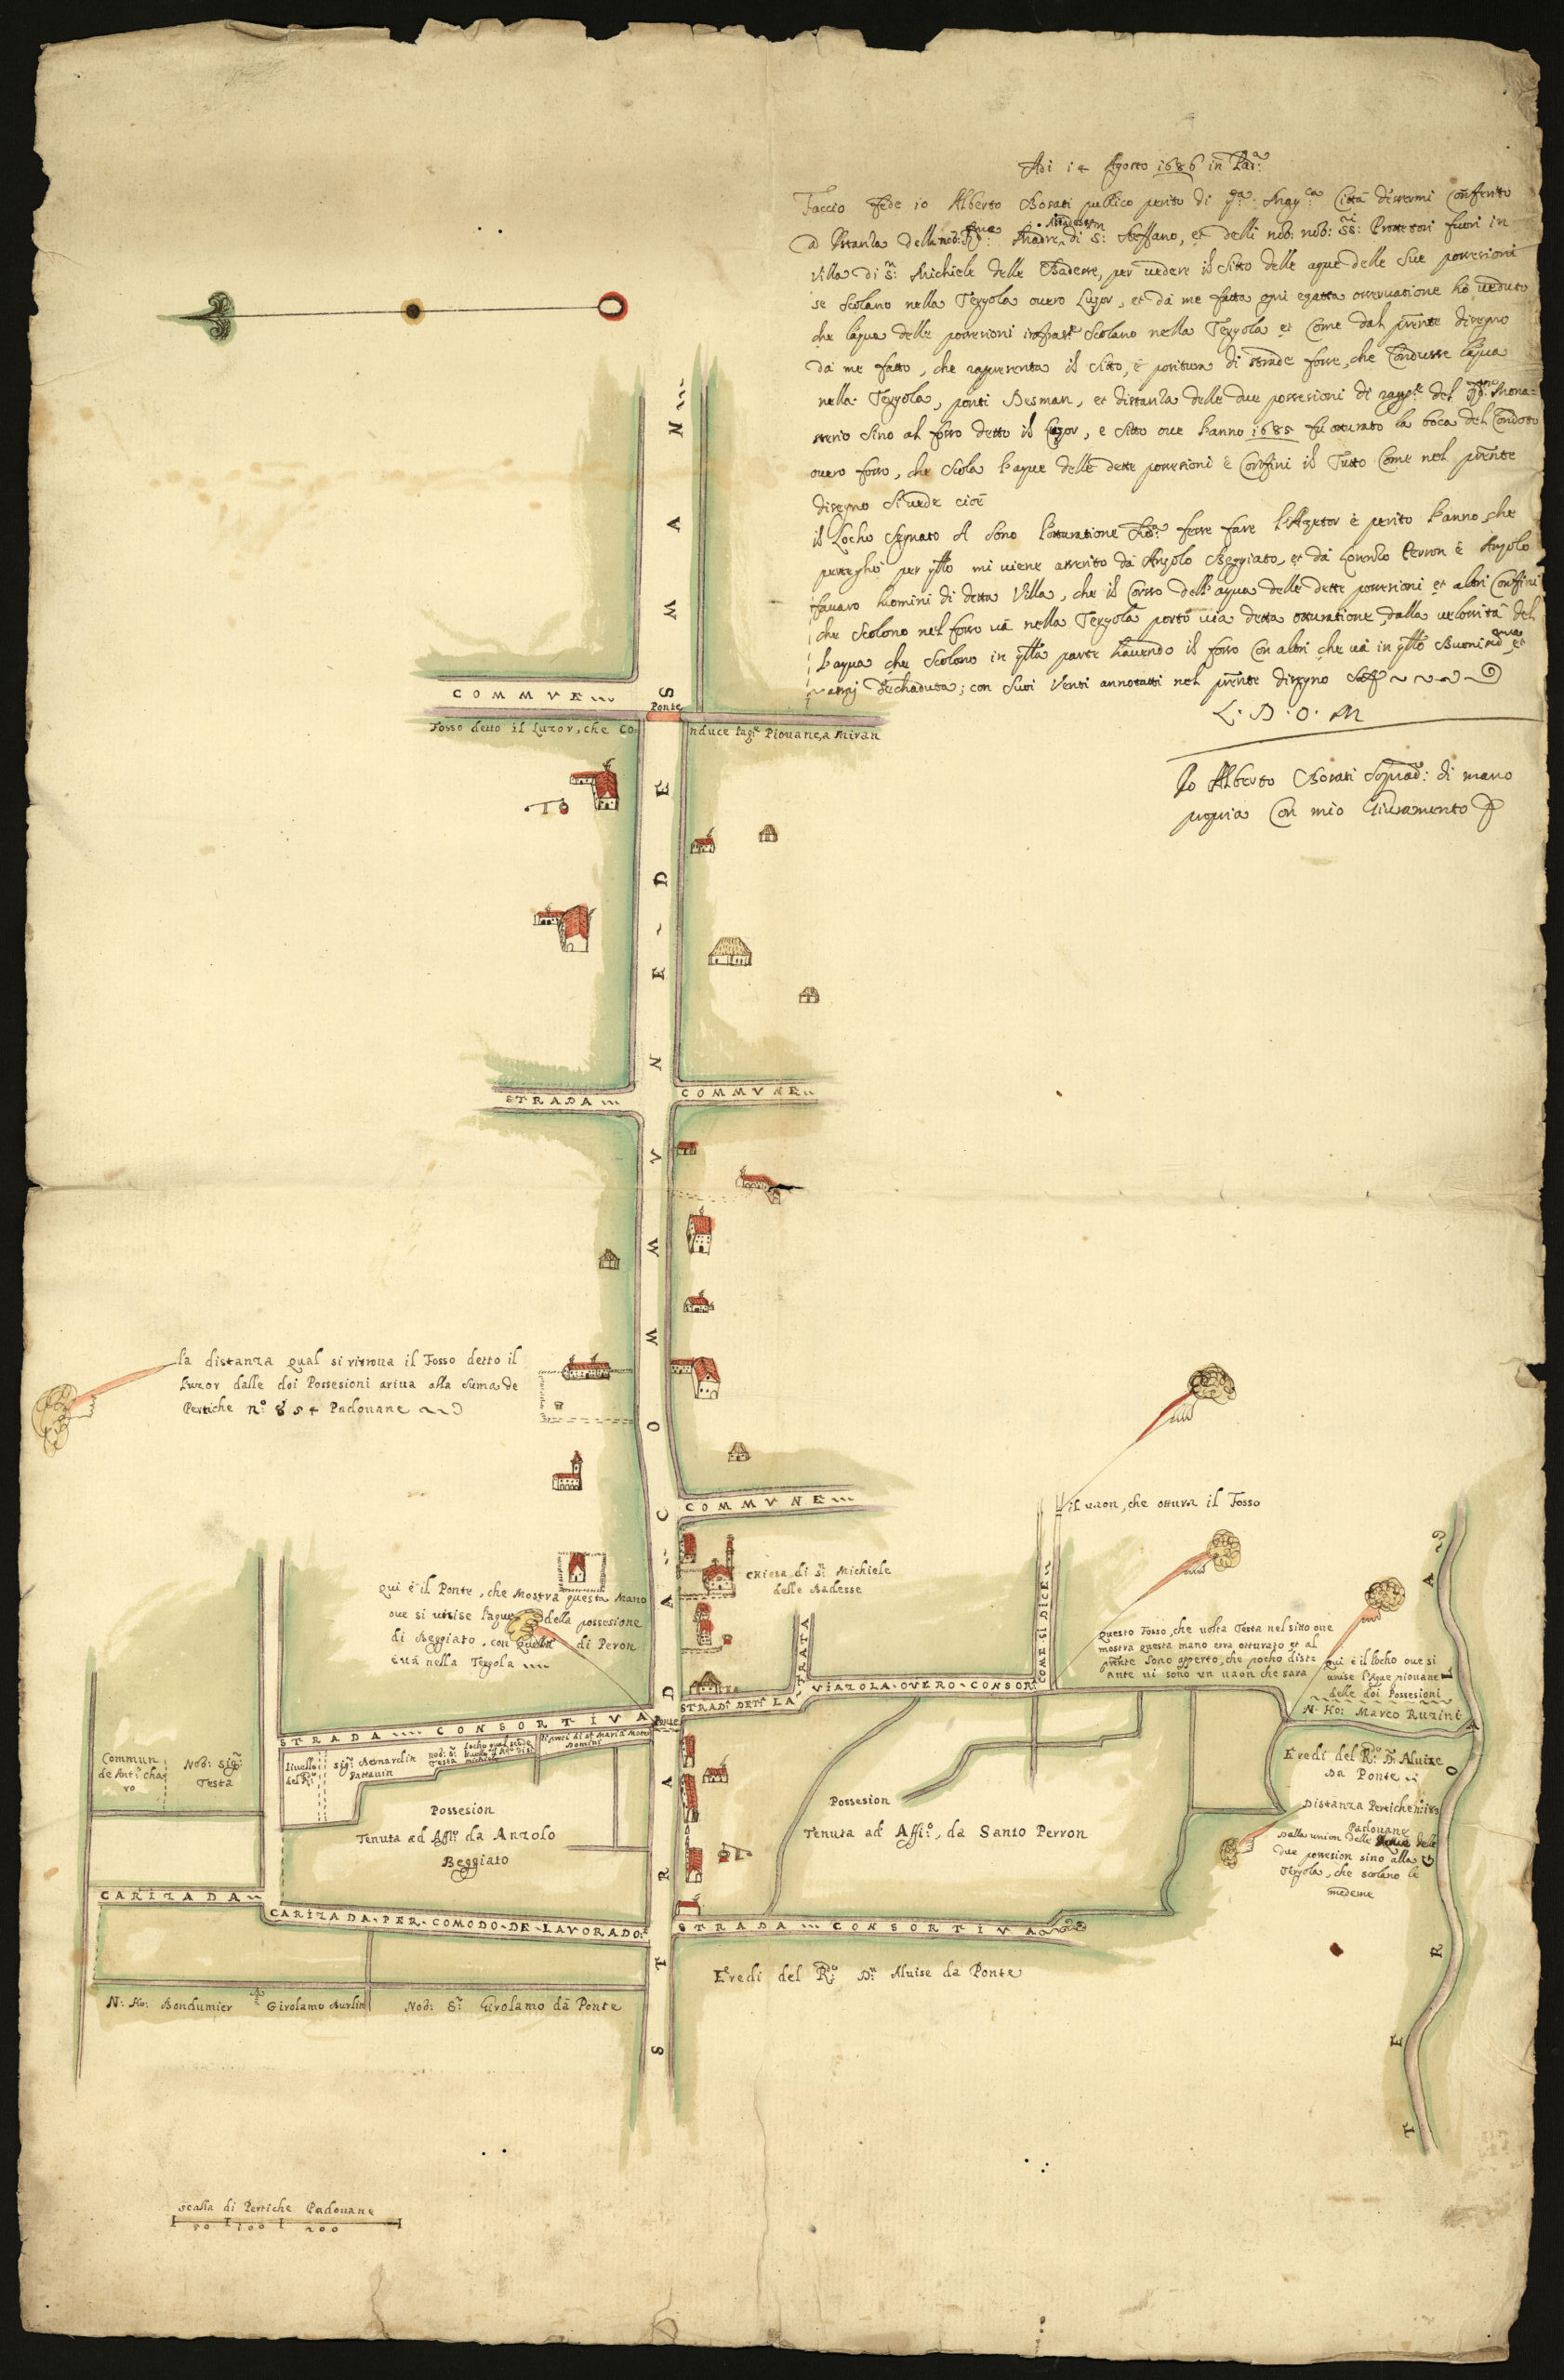 Adi 14 Agosto 1686 in Pad.ª
Faccio fede io Alberto Bosati publico perito di q.ta Mag.ca Città essermi Conferito
a Istanza della nob: R.da Madre Abbadessa di S: Steffano, et delli nob: nob: SS:ri Protetori fuori in
Villa di S:n Michiele delle Badesse, per vedere il sitto delle aque delle sue possesioni
se scolano nella Tergola overo Luzor, et da me fatta ogni egatta osservatione hò veduto
che l'aqua delle possesioni scolano nella Tergola et Come dal p̄nte disegno
da me fatto, che rapresenta il sitto, è positura di strade fosse, che Condusse l'aqua
nella Tergola, ponti Besman, et distanza delle due possesioni di rag.e del Mona=
sterio sino al fosso detto il Luzor, e sitto ove l'anno 1685 fu otturato la boca del Condoto
overo fosso, che scola l'aque delle dette possesioni è Confini il Tutto Come nel p̄nte
disegno si vede cioè
il Locho segnato A sono l'otturatione fesse fare l'Agetor è perito l'anno, che
per q̄llo mi viene asserito da Anzolo Beggiato, et da Lorenzo Perron è Anzolo
favaro homini di detta Villa, che il Corso dell'aqua delle dette possesioni et altri Confini
che scolono nel fosso và nella Tergola portò via detta otturatione dalla velossità del
l'aqua che scolono in q̄lla parte havendo il fosso Con altri che và in q̄llo Buonissima et
dechaduta; con suoi Venti annotatti nel p̄nte disegno
L. D. O. M
Io Alberto Bosati di mano
propria Con mio Giuramento
O
STRADA COMMVNE DE S MAN
COMMVE
Ponte
Fosso detto il Luzor, che co
nduce l'ag.e Piovane, a Miran
STRADA
COMMVNE
la distanza qual si ritrova il Fosso detto il
Luzor dalle doi Possesioni ariva alla suma de
Pertiche n.º 854 Padouane
COMMVNE
il vaon, che ottura il Fosso
Chiesa di S.n Michiele
delle Badesse
qui è il Ponte, che Mostra questa Mano
ove si unise l'aque della possesione
di Beggiato, con quela di Peron
è và nella Tergola
COME SI DICE
questo Fosso, che volta Testa nel sitto ove
mostra questa mano erra otturato et al
p̄nte sono apperto, che pocho dista
ante vi sono un vaon che sara
qui è il locho ove si
unise l'Aque piovane
delle doi Possesioni
N. Ho: Marco Ruzini
A
STRAD.ª DET.ª LA STRATA VIAZOLA OVERO CONSOR.
STRADA CONSORTIVA
Ponte
Commun
de Ant.º cha
ro
Nod: Sig.r
Testa
Livello
del R.do
Sig.r Bernardin
Pattavin
Possesion
Tenuta ad Affi.º da Anzolo
Beggiato
Possesion
Tenuta ad Affi.º, da Santo Perron
Eredi del R.do D.n Aluise
Da Ponte
Distanza Pertiche n.º 183
Padouane
Dalla union delle delle
due possesion sino alla
Tergola, che scolano le
medeme
CARIZADA
CARIZADA PER COMODO DE LAVORADO.
STRADA CONSORTIVA
Eredi del R.do D.n Aluise da Ponte
N: Ho: Bondumier
Girolamo Burlin
Nod: S.r Girolamo dà Ponte
TERGOLA
Scalla di Pertiche Padouane
50 100 200